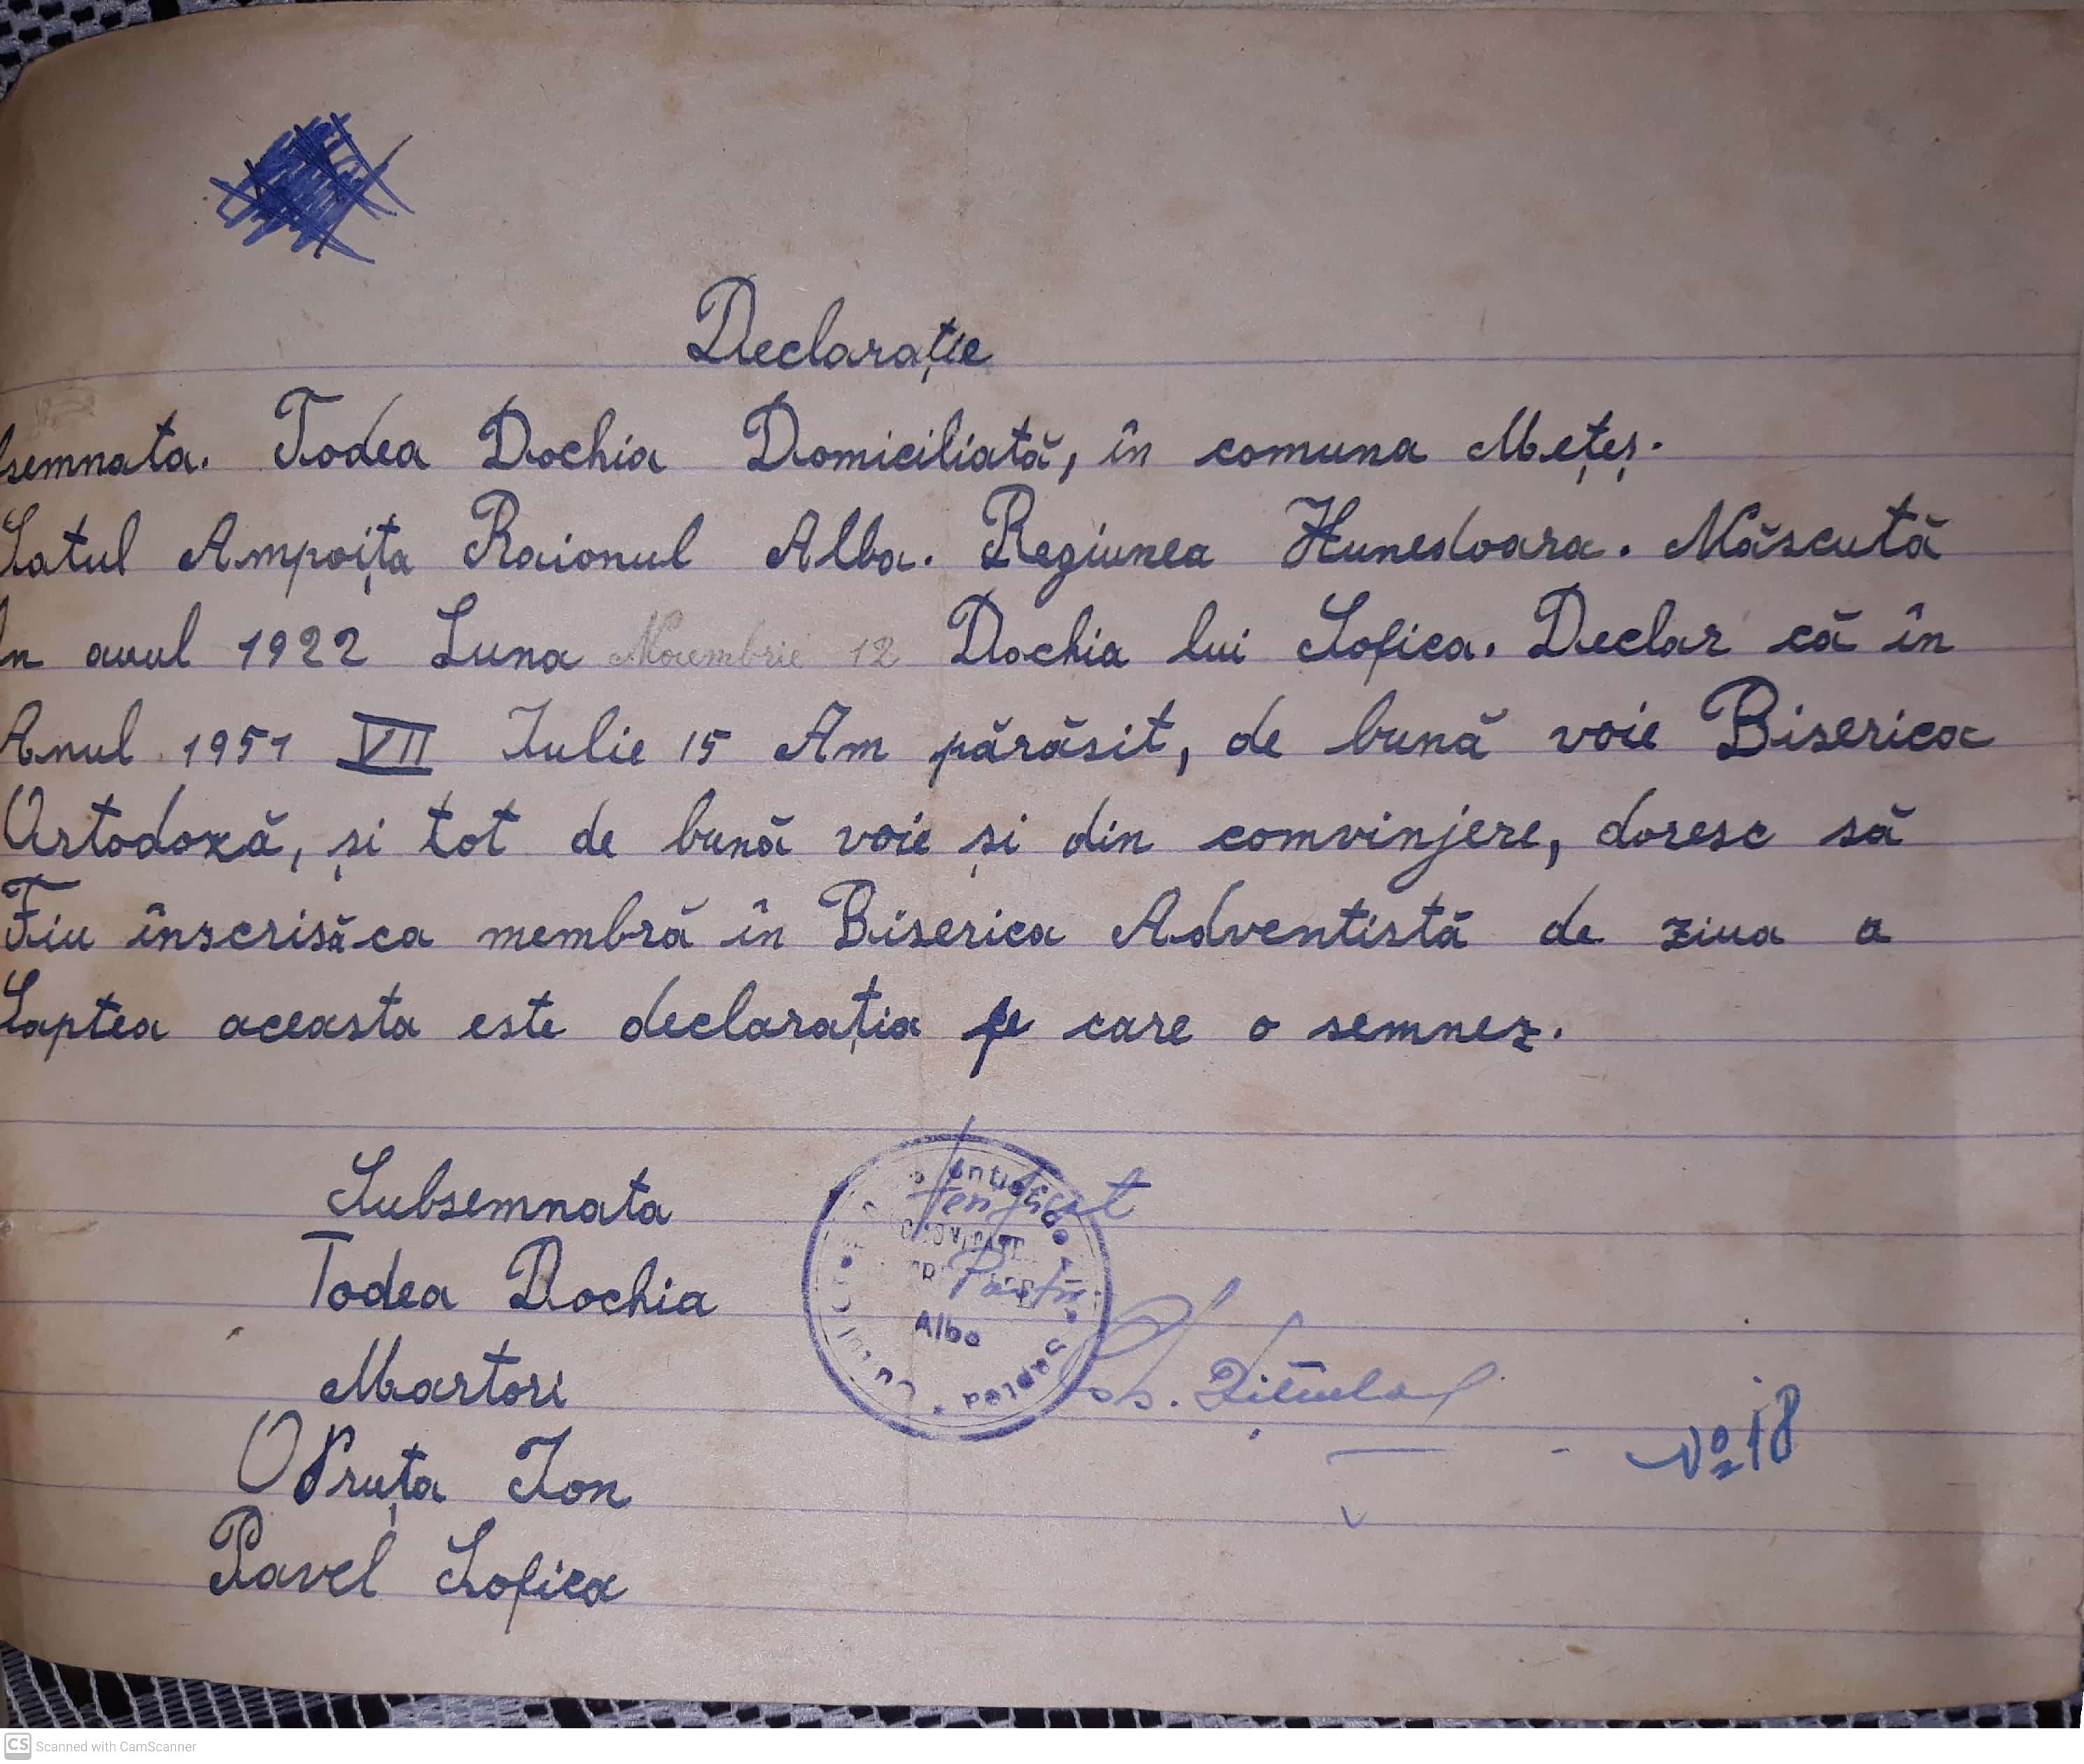 Declarație
semnata. Todea Dochia Domiciliată, în comuna Meteș.
Satul Ampoița Raionul Alba. Regiunea Hunedoara. Născută
în anul 1922 Luna Noiembrie 12 Dochia lui Sofica. Declar că în
Anul 1951 VII Iulie 15 Am părăsit, de bună voie Biserica
Ortodoxă, și tot de bună voie și din comvinjere, doresc să
Fiu înscrisă ca membră în Biserica Adventistă de ziua a
Saptea aceasta este declarația pe care o semnez.
Subsemnata
Todea Dochia
Alba
Martori
Pruța Ion
No 18
Pavel Sofica
CS Scanned with CamScanner